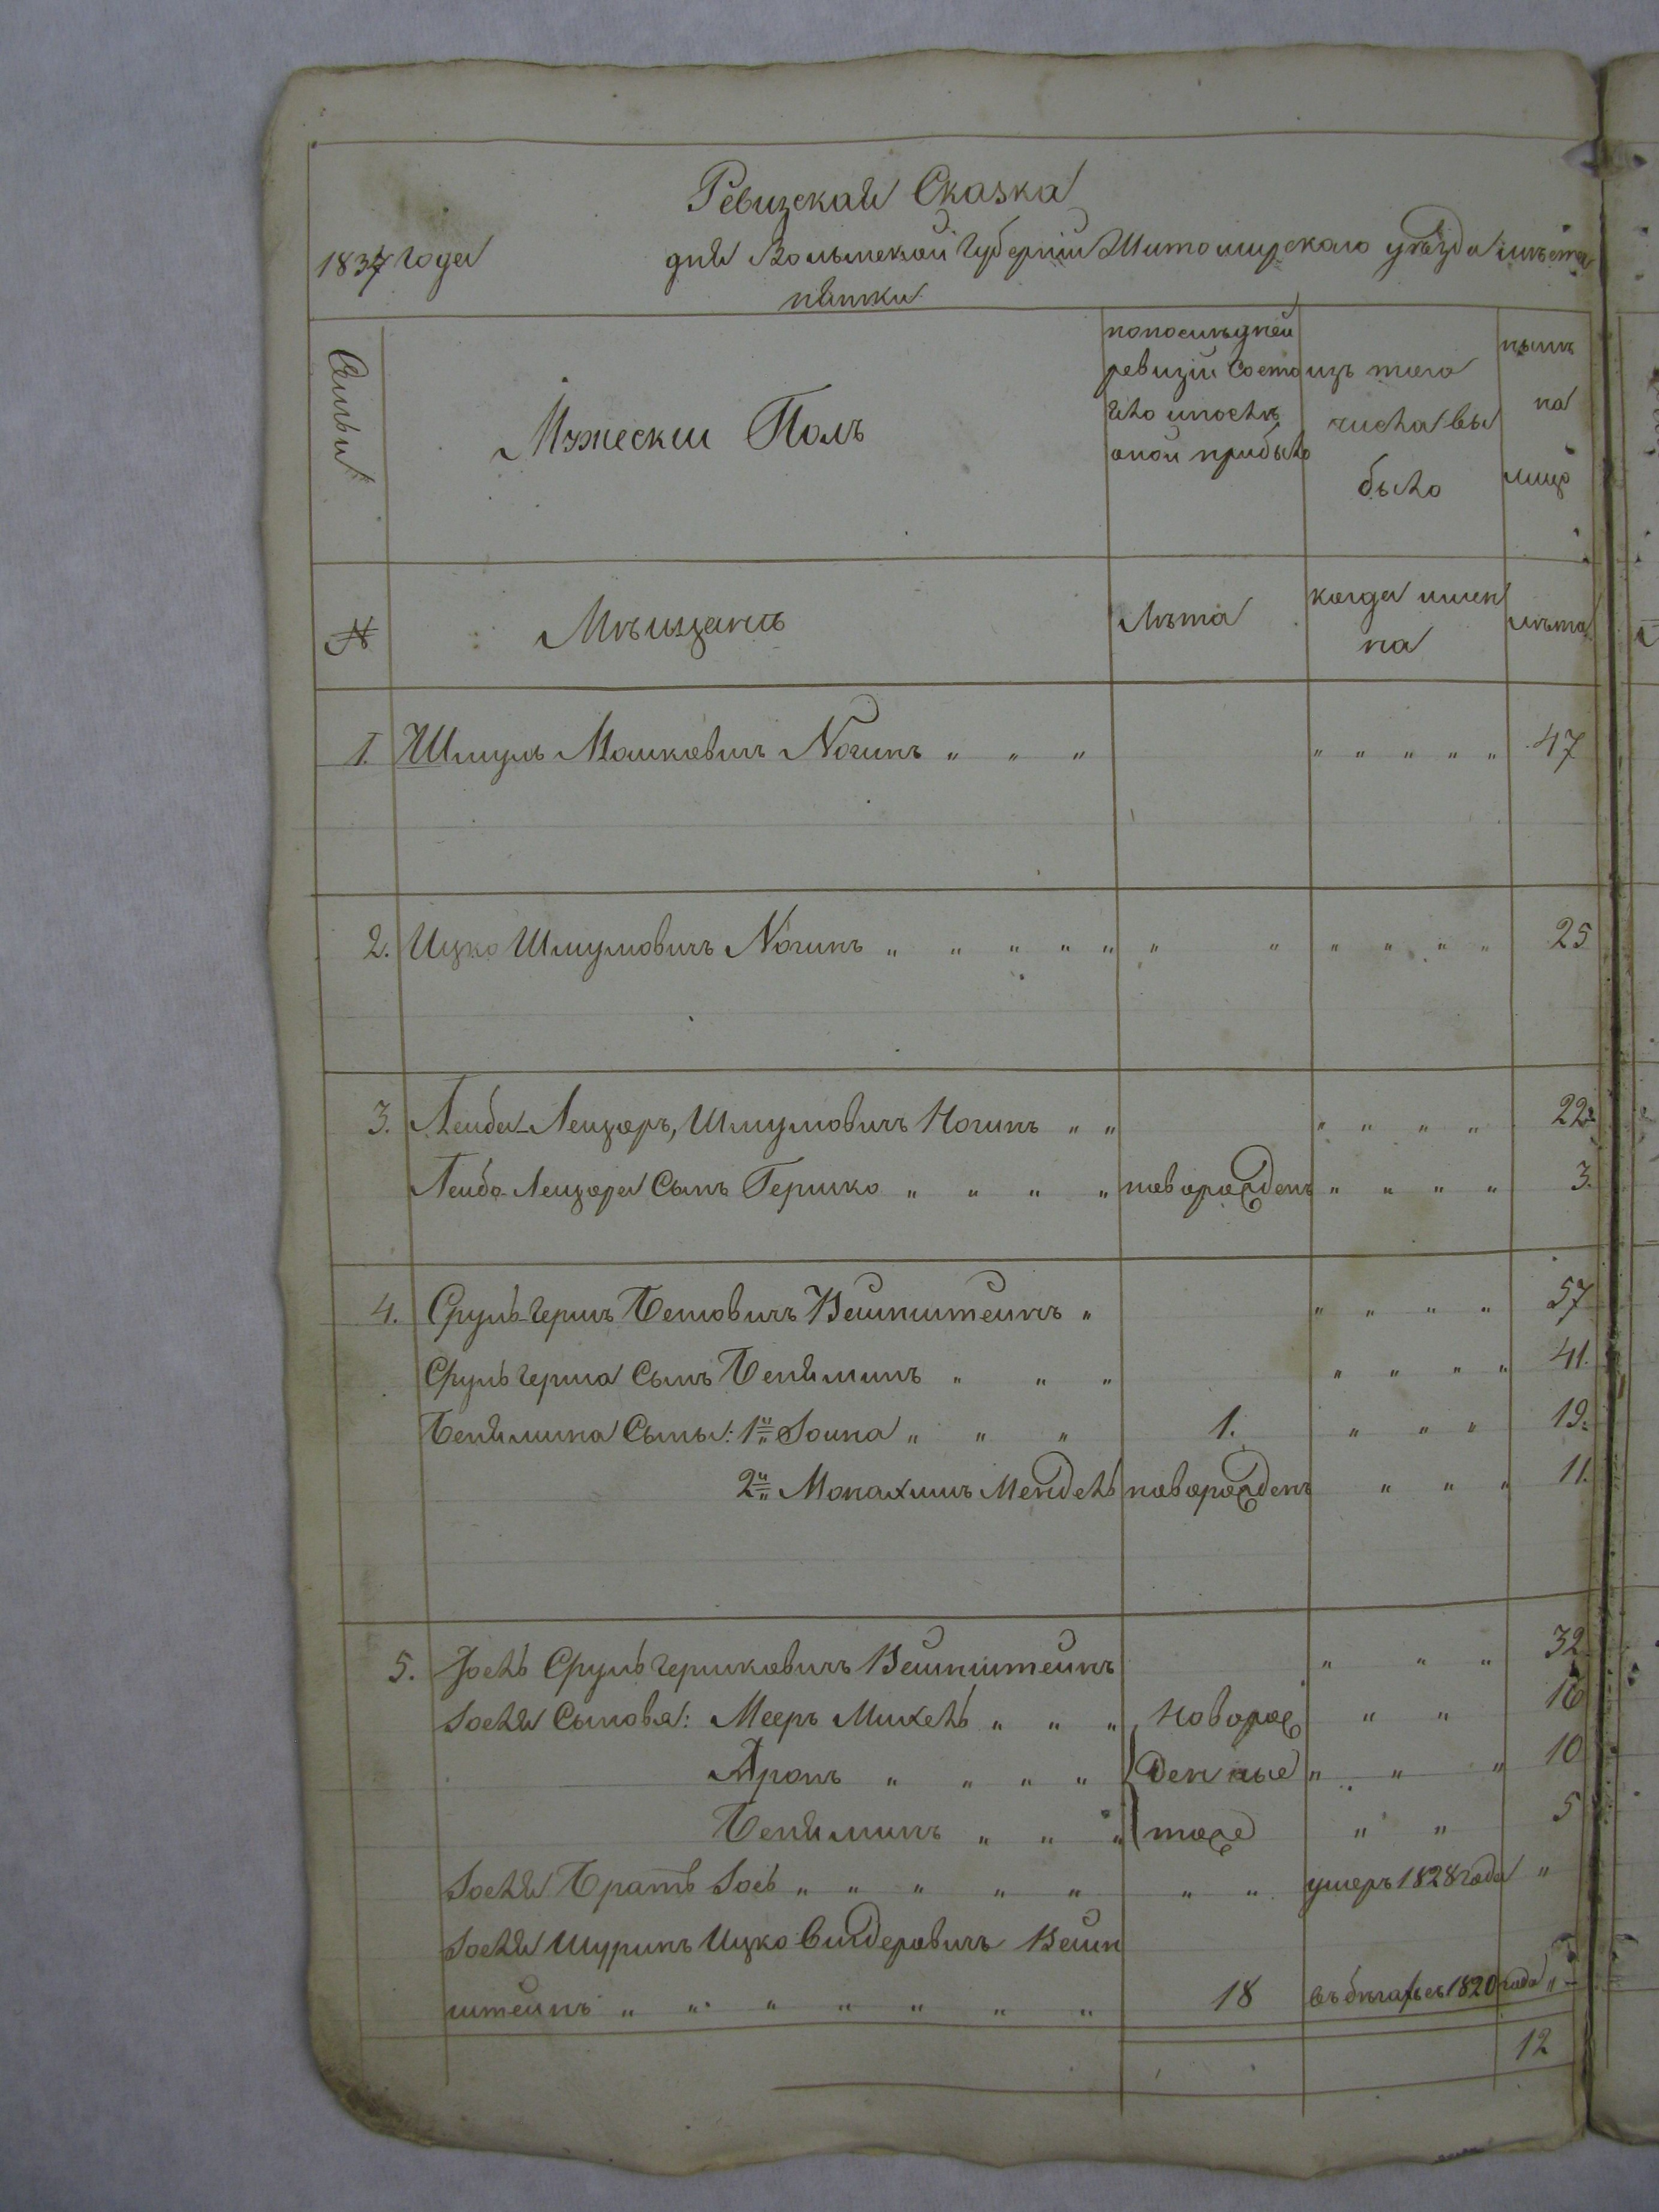 Ревизская Сказка
1834 года дня Волынской губерніи Житомирского уѣзда мѣста
пятки
Семьи
Мужескии Полъ
попослѣдней
ревизіи состо
яло ипослѣ
оной прибыло
изъ того
числа вы
было
нынѣ
на
лицо
№
Мѣщанъ
Лѣта
когда имен
на
лѣта
1. Шмуль Мошковичъ Ногинъ " " " " " " " " 47
2. Ицко Шмулиовичъ Ногинъ " " " " " " " " " " " " 25
3. Леиба-Леизоръ, Шмулиовичъ Ногинъ " " " " " " 22
Леибо-Леизора Сынъ Гершко " " " " новорожденъ " " " " 3.
4. Сруль-гершъ Беніовичъ Веинштеинъ " " " " " 57
Сруль герша Сынъ Беняминъ " " " " " " " 41.
Бенямина Сыны: 1й Іоина " " " 1. " " " 19.
2й Монахимъ Мендель новорожденъ " " " 11.
5. Іосель Сруль гершковичъ Веинштеинъ " " " 32
Іоселя Сыновя: Мееръ Михель " " " Новорож " " 16
Аронъ " " " " денные " " " 10
Беняминъ " " " тоже " " 5
Іоселя Братъ Іось " " " " " " " умеръ 1828 года "
Іоселя Шуринъ Ицко Синдеровичъ Веин
штеинъ " " " " " " " 18 въ бѣгахъ съ 1820 года "
12